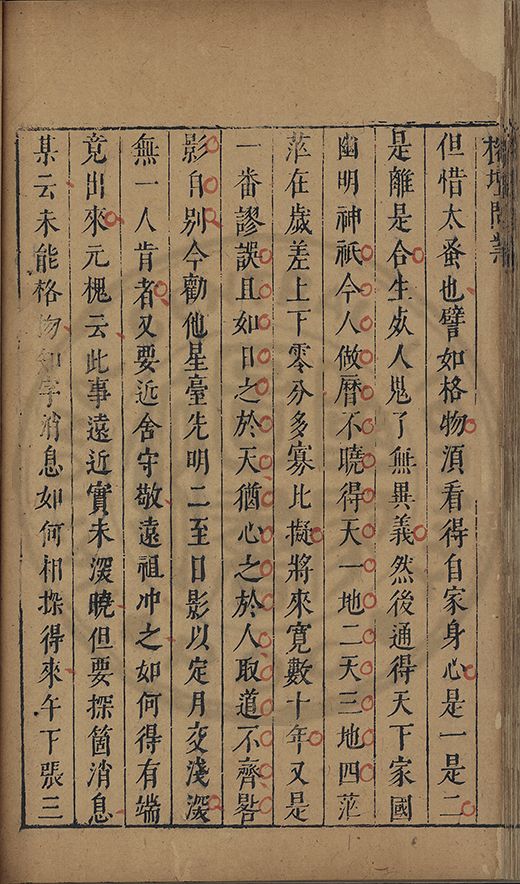 榕壇問業
但惜太蚤也譬如格物須看得自家身心是一是二
是離是合生处人鬼了無異義然後通得天下家國
幽明神祇今人做曆不曉得天一地二天三地四茫
茫在歲差上下零分多寡比擬將來寬數十年又是
一番謬誤且如日之於天猶心之於人取道不齊畧
影自别今勸他星臺先明二至日影以定月交淺深
無一人肯者又要近舍守敬遠祖冲之如何得有端
竟出來元槐云此事遠近實未深曉但要探箇消息
某云未能格物知字消息如何相探得來午下張三